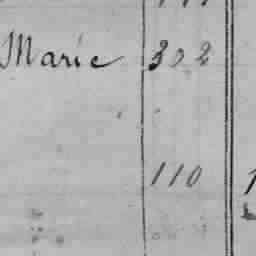 Marie 302
110